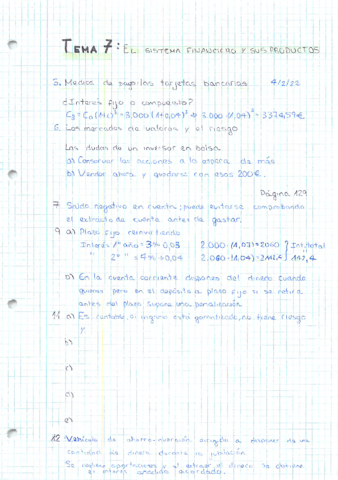 TEMA 7: EL SISTEMA FINANCIERO Y SUS PRODUCTOS
5. Medios de pago: las tarjetas bancarias 4/2/22
¿Interés fijo o compuesto?
6. Los mercados de valores y el riesgo
Las dudas de un inversor en bolsa
a) Conservar las acciones a la espera de más
b) Vender ahora y quedarse con esos 200€.
Página 129
7 Saldo negativo en cuenta; puede evitarse comprobando
el extracto de cuenta antes de gastar.
9 a) Plazo fijo
Interés 1º año = 3% 0,03 2.000·(1,03)=2060 Int. total
2º " = 4% → 0,04 2.060·(1,04)=2142,4 142,4
b) En la cuenta corriente dispones del dinero cuando
quieras pero en el depósito a plazo fijo si se retira
antes del plazo supone una penalización
11 a) Es rentable, si no tiene riesgo
y
b)
c)
d)
e)
12 Vehículo de ahorro-inversión dirigido a disponer de una
cantidad de dinero durante la jubilación
Se realizan aportaciones y al el dinero se obtiene
el interés acordado.